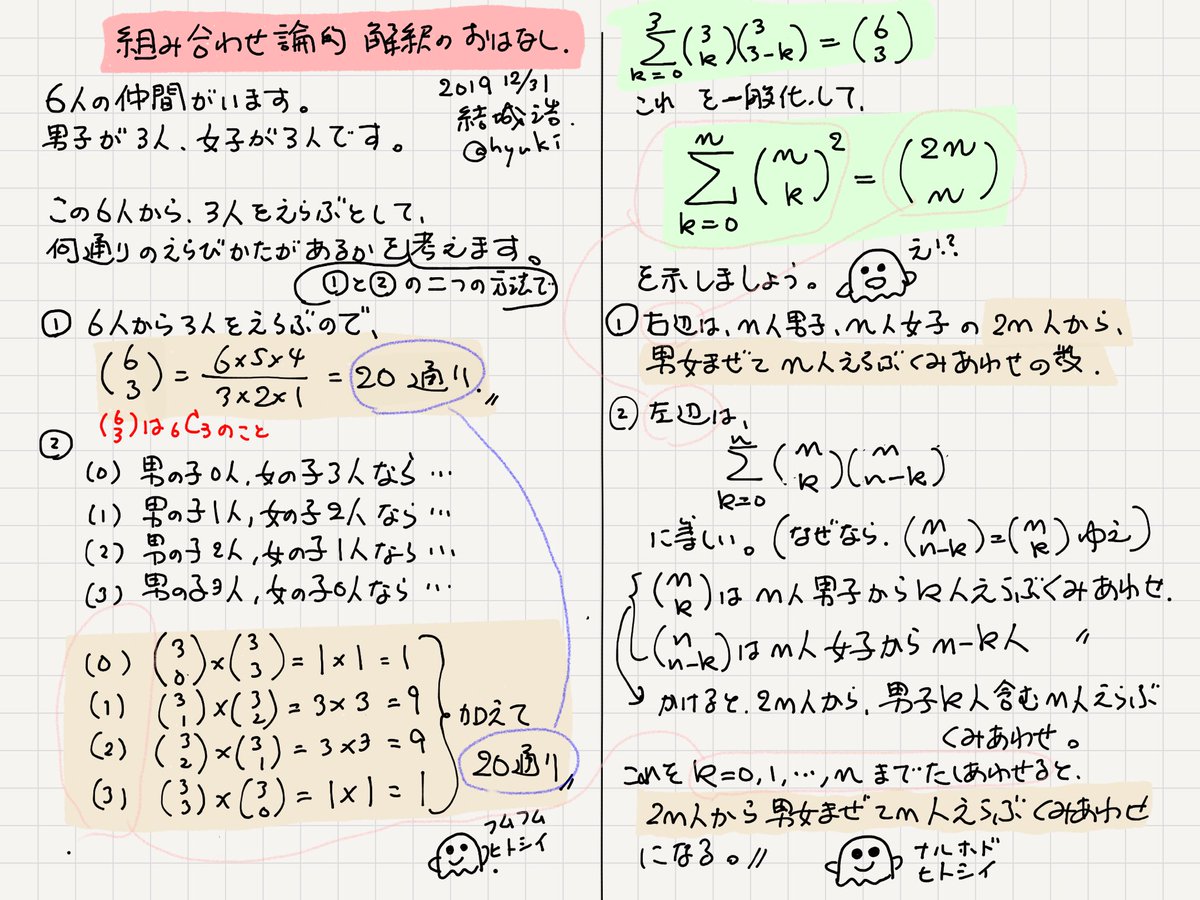 組み合わせ論的 解釈のおはなし.
2019 12/31
結城浩.
@hyuki
6人の仲間がいます。
男子が3人、女子が3人です。
この6人から、3人をえらぶとして、
何通りのえらびかたがあるかを考えます。
①と②の二つの方法で
① 6人から3人をえらぶので、
(6 3) = 6×5×4 / 3×2×1 = 20通り.〃
(6 3)は 6C3 のこと
②
(0) 男の子0人, 女の子3人なら…
(1) 男の子1人, 女の子2人なら…
(2) 男の子2人, 女の子1人なら…
(3) 男の子3人, 女の子0人なら…
(0) (3 0)×(3 3) = 1×1 = 1
(1) (3 1)×(3 2) = 3×3 = 9
(2) (3 2)×(3 1) = 3×3 = 9
(3) (3 3)×(3 0) = 1×1 = 1
加えて
20通り〃
フムフム
ヒトシイ.
3
∑ (3 k)(3 3-k) = (6 3)
k=0
これを一般化して、
n
∑ (n k)² = (2n n)
k=0
え!?
を示しましょう。
① 右辺は、n人男子、n人女子の2n人から、
男女まぜてn人えらぶくみあわせの数.
② 左辺は、
n
∑ (n k)(n n-k)
k=0
に等しい。(なぜなら、(n n-k)=(n k) ゆえ)
(n k)はn人男子からk人えらぶくみあわせ.
(n n-k)はn人女子からn-k人 〃
かけると、2n人から、男子k人含むn人えらぶ
くみあわせ。
これをk=0,1,…,nまでたしあわせると、
2n人から男女まぜてn人えらぶくみあわせ
になる。〃
ナルホド
ヒトシイ